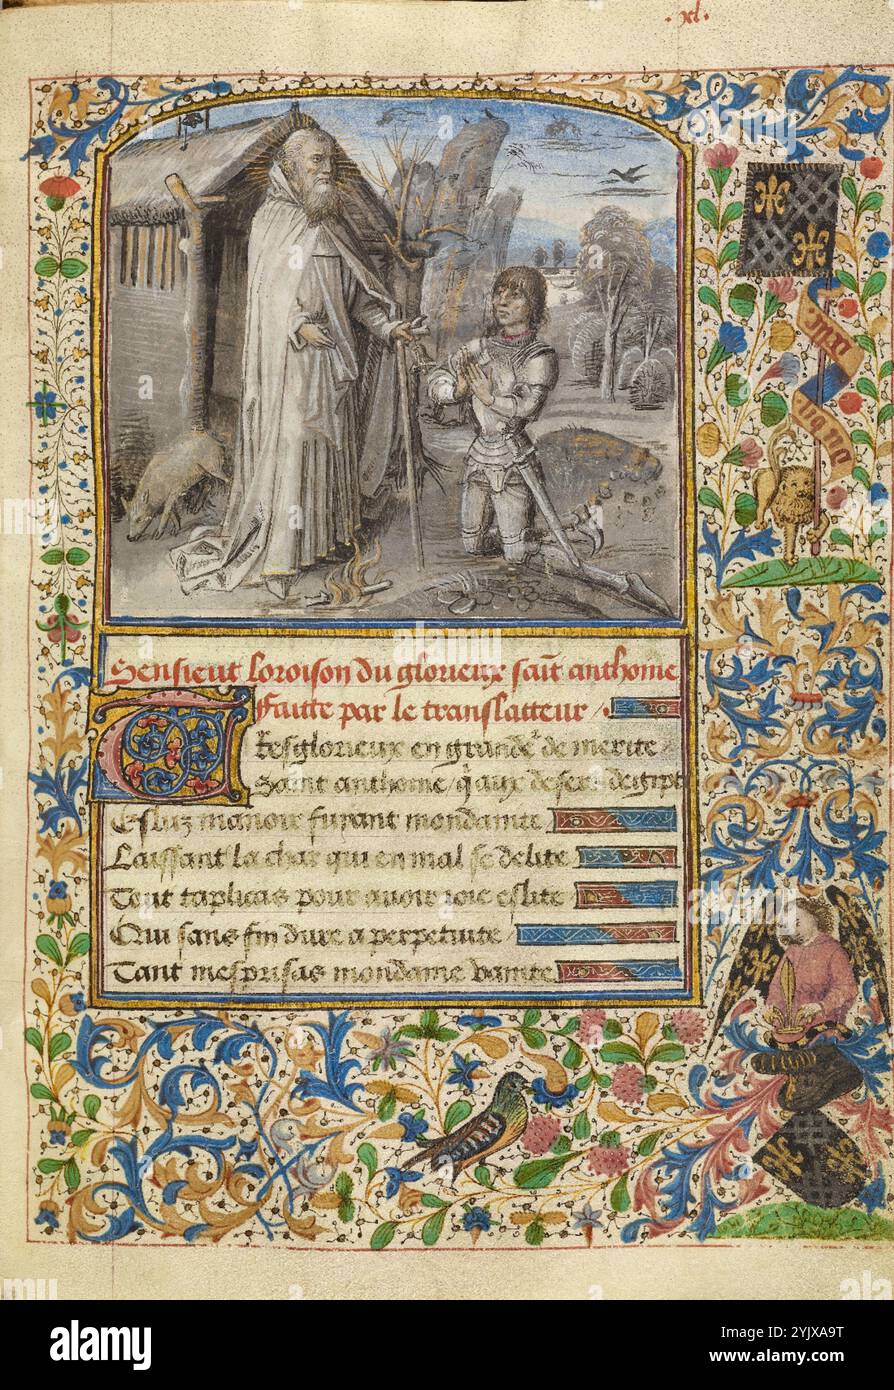 .xl.
Sensieut loroison du glorieux saīt anthoine
faitte par le translatteur /.
Tresglorieux en grande de merite
Saint anthoine /
Esluz manoir fuyant mondainite
Laissant la char qui en mal se delite
Tout taplicas pour auoir ioie eslite
Qui sans fin dure a perpetuite
Tant mesprisas mondaine vainte
alamy
Image ID: 2YJXA9T
www.alamy.com